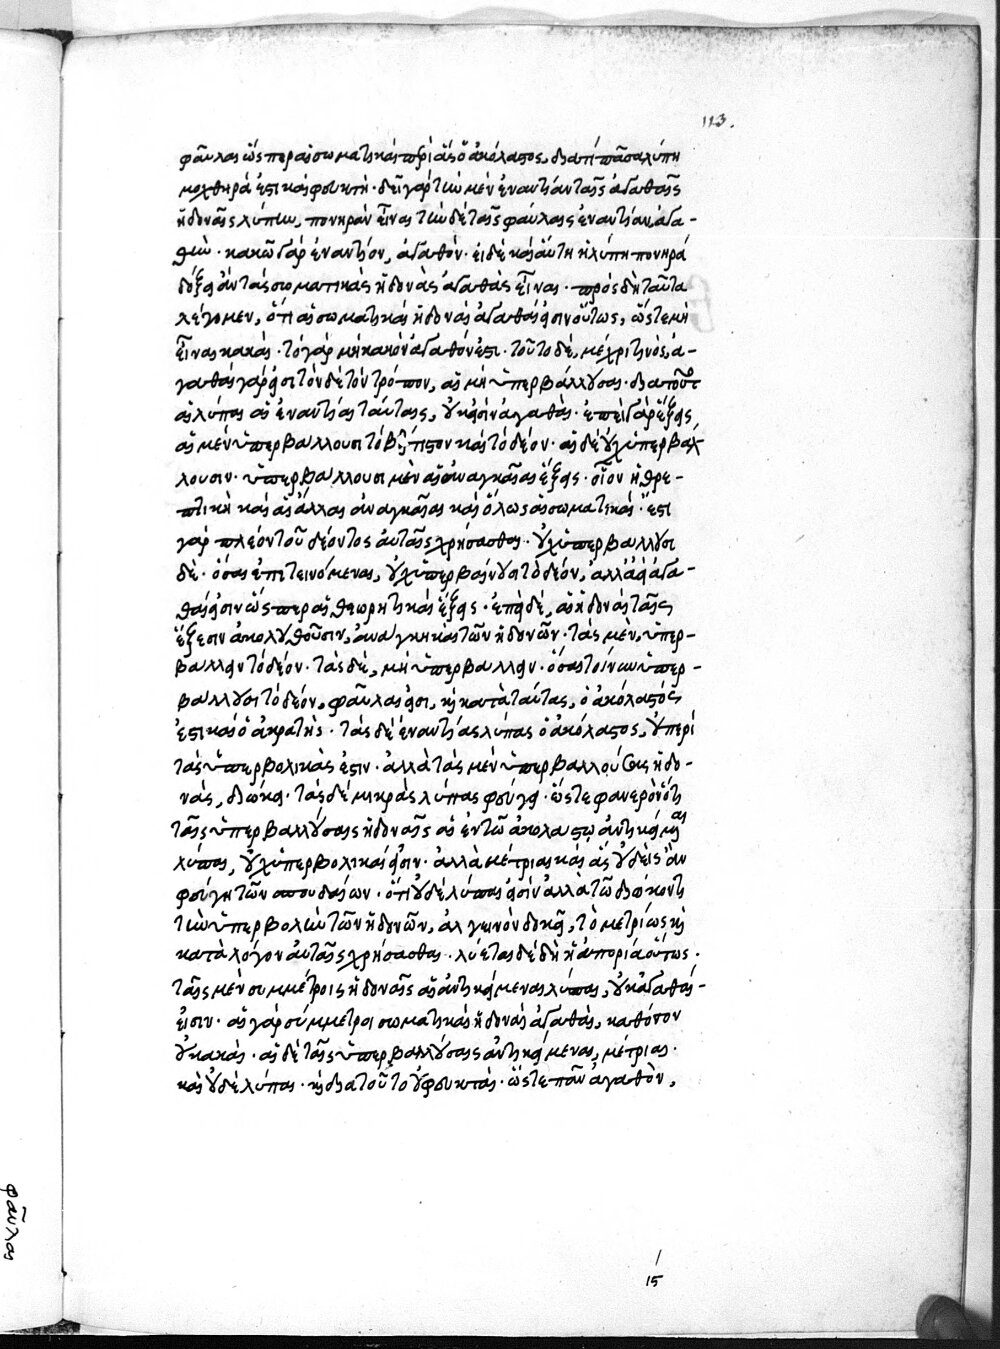 113.
φαῦλαι ὥσπερ αἱ σωματικαὶ περὶ ἃς ὁ ἀκόλαστος, διατί πᾶσα λύπη
μοχθηρά ἐστι καὶ φευκτή · δεῖ γὰρ τὴν μὲν ἐναντίαν ταῖς ἀγαθαῖς
ἡδοναῖς λύπην, πονηρὰν εἶναι τὴν δὲ ταῖς φαύλαις ἐναντίαν, ἀγα-
θήν · κακῷ γὰρ ἐναντίον, ἀγαθόν · εἰ δὲ καὶ αὕτη ἡ λύπη πονηρά
δόξει ἂν τὰς σωματικὰς ἡδονὰς ἀγαθὰς εἶναι · πρὸς δὴ ταῦτα
λέγομεν, ὅτι αἱ σωματικαὶ ἡδοναὶ ἀγαθαί εἰσιν οὕτως, ὥστε μὴ
εἶναι κακαί · τὸ γὰρ μὴ κακὸν ἀγαθόν ἐστι · τοῦτο δὲ, μέχρι τινός, ἀ-
γαθαὶ γάρ εἰσι τόνδε τὸν τρόπον, αἱ μὴ ὑπερβάλλουσαι · διατοῦτο
αἱ λύπαι αἱ ἐναντίαι ταύταις, οὐκ εἰσὶν ἀγαθαί · ἐπεὶ γὰρ ἕξεις
αἱ μὲν ὑπερβάλλουσι τὸ βέλτιστον καὶ τὸ δέον · αἱ δὲ οὐχ ὑπερβάλ
λουσιν · ὑπερβάλλουσι μὲν αἱ ἀναγκαῖαι ἕξεις · οἷον ἡ θρε-
πτικὴ καὶ αἱ ἄλλαι ἀναγκαῖαι καὶ ὅλως αἱ σωματικαί · ἔστι
γὰρ πλέον τοῦ δέοντος αὐταῖς χρήσασθαι · οὐχ ὑπερβάλλουσι
δὲ · ὅσαι ἐπιτεινόμεναι, οὐχ ὑπερβαίνουσι τὸ δέον, ἀλλ' ἀεὶ ἀγα-
θαί εἰσιν ὥσπερ αἱ θεωρητικαὶ ἕξεις · ἐπεὶ δὲ, αἱ ἡδοναὶ ταῖς
ἕξεσιν ἀκολουθοῦσιν, ἀνάγκη καὶ τῶν ἡδονῶν · τὰς μὲν, ὑπερ-
βάλλειν τὸ δέον · τὰς δὲ, μὴ ὑπερβάλλειν · ὅσαι τοίνυν ὑπερ-
βάλλουσι τὸ δέον, φαῦλαι εἰσι, καὶ κατὰ ταύτας, ὁ ἀκόλαστός
ἐστι καὶ ὁ ἀκρατής · τὰς δὲ ἐναντίας λύπας ὁ ἀκόλαστος, οὐ περὶ
τὰς ὑπερβολικὰς ἐστιν · ἀλλὰ τὰς μὲν ὑπερβαλλούσας ἡδο-
νὰς, διώκει · τὰς δὲ μικρὰς λύπας φεύγει · ὥστε φανερὸν ὅτι
ταῖς ὑπερβαλλούσαις ἡδοναῖς αἱ ἐν τῷ ἀκολάστῳ ἀντικείμεναι
λύπαι, οὐχ ὑπερβολικαί εἰσιν · ἀλλὰ μέτριαι καὶ ἃς οὐδεὶς ἂν
φεύγῃ τῶν σπουδαίων · ὅτι οὐδὲ λύπαι εἰσὶν ἀλλὰ τῷ διώκοντι
τὴν ὑπερβολὴν τῶν ἡδονῶν, ἀλγεινὸν δοκεῖ, τὸ μετρίως καὶ
κατὰ λόγον αὐταῖς χρήσασθαι · λύεται δὲ δὴ ἡ ἀπορία οὕτως ·
ταῖς μὲν συμμέτροις ἡδοναῖς αἱ ἀντικείμεναι λύπαι, οὐκ ἀγαθαί-
εἰσιν · αἱ γὰρ σύμμετροι σωματικαὶ ἡδοναὶ ἀγαθαὶ, καθόσον
οὐ κακαί · αἱ δὲ ταῖς ὑπερβαλλούσαις ἀντικείμεναι, μέτριαι ·
καὶ οὐδὲ λύπαι · καὶ διατοῦτο οὐ φευκταί · ὥστε πᾶν ἀγαθὸν,
φαῦλαι
15